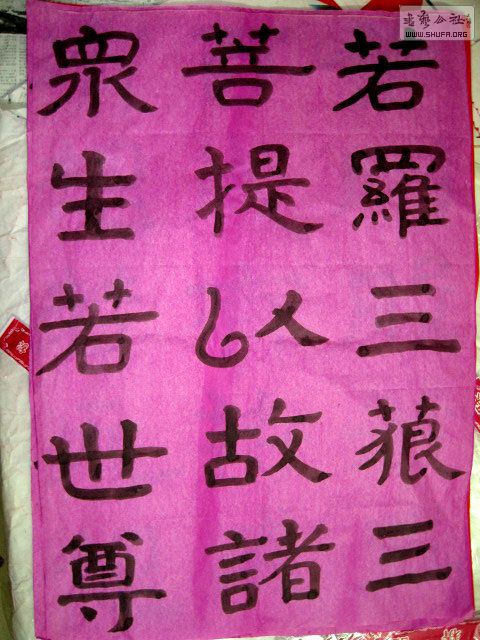 書藝公社
WWW.SHUFA.ORG
若羅三藐三
菩提以故諸
眾生若世尊